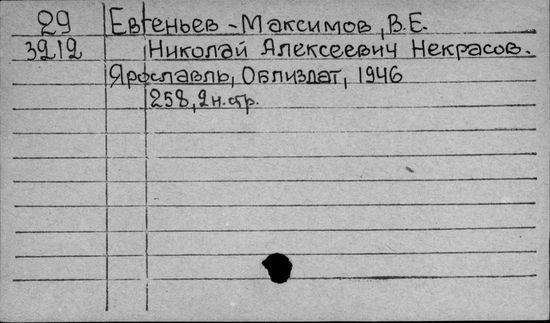 29 Евгеньев-Максимов, В.Е.
3212 Николай Алексеевич Некрасов.
Ярославль, Облиздат, 1946
258, 2 н. стр.